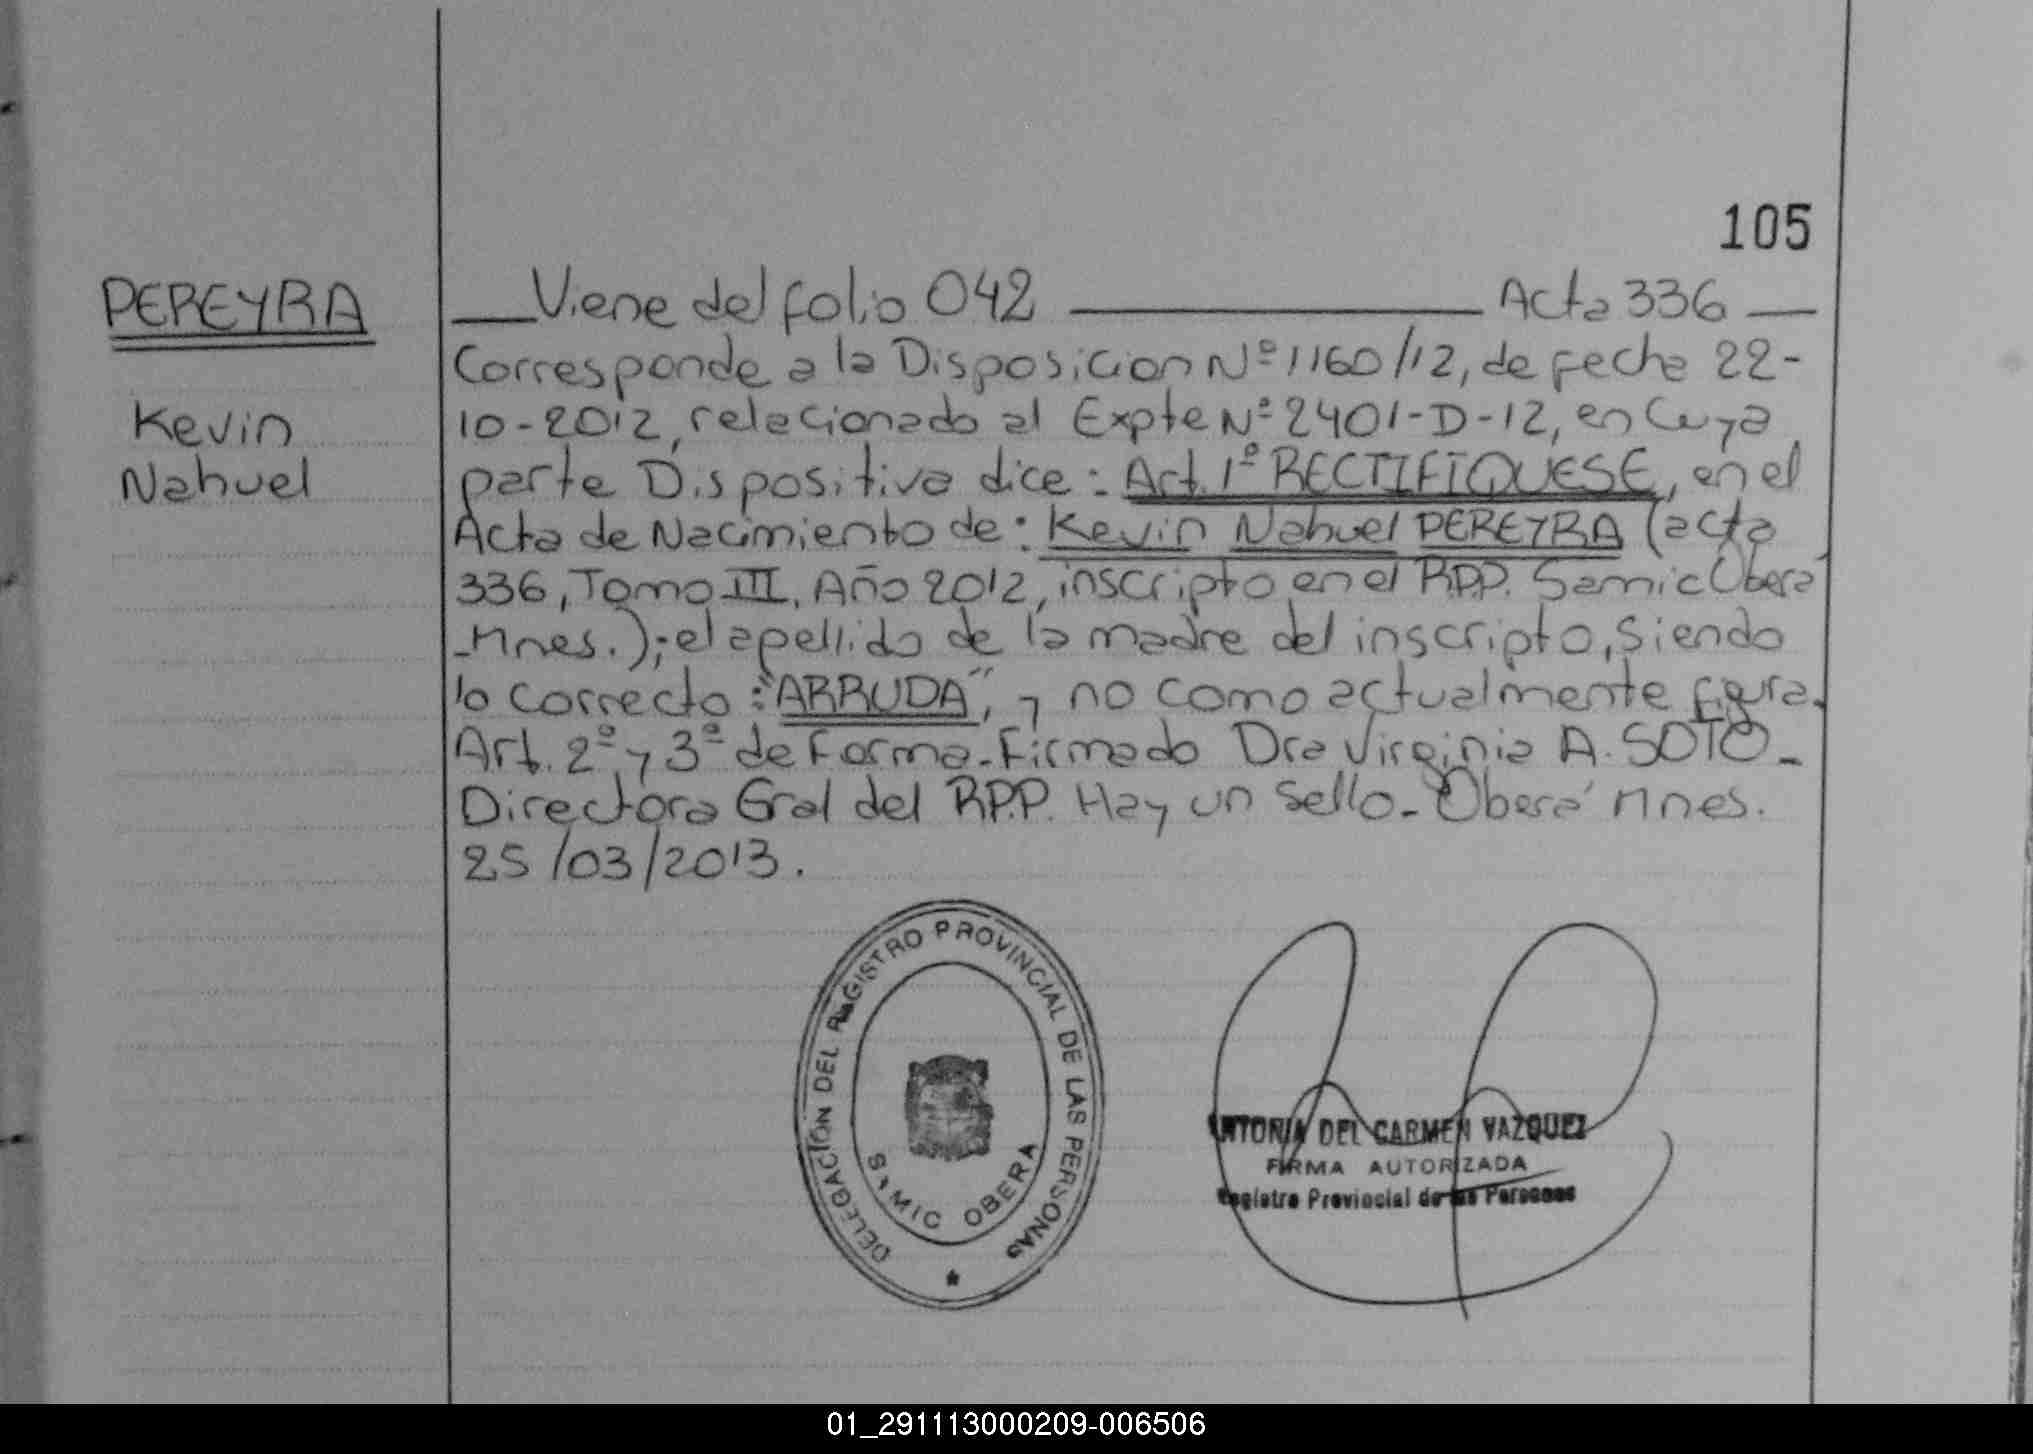 105
PEREYRA
Kevin
Nahuel
Viene del folio 042 Acta 336
Corresponde a la Disposicion Nº 1160/12, de fecha 22-
10-2012, relacionado al Expte Nº 2401-D-12, en Cuya
parte Dispositiva dice: Art. 1º RECTIFIQUESE, en el
Acta de Nacimiento de: Kevin Nahuel PEREYRA (acta
336, Tomo III, Año 2012, inscripto en el R.P.P. Samic Oberá
-Mnes.); el apellido de la madre del inscripto, siendo
lo correcto: "ARRUDA", y no como actualmente figura.
Art. 2º y 3º de Forma-Firmado Dra Virginia A. SOTO-
Directora Gral del R.P.P. Hay un Sello-Oberá Mnes.
25/03/2013.
DELEGACIÓN DEL REGISTRO PROVINCIAL DE LAS PERSONAS
SAMIC OBERA
DEL CARMEN VAZQUEZ
FIRMA AUTORIZADA
Registro Provincial de las Personas
01_291113000209-006506